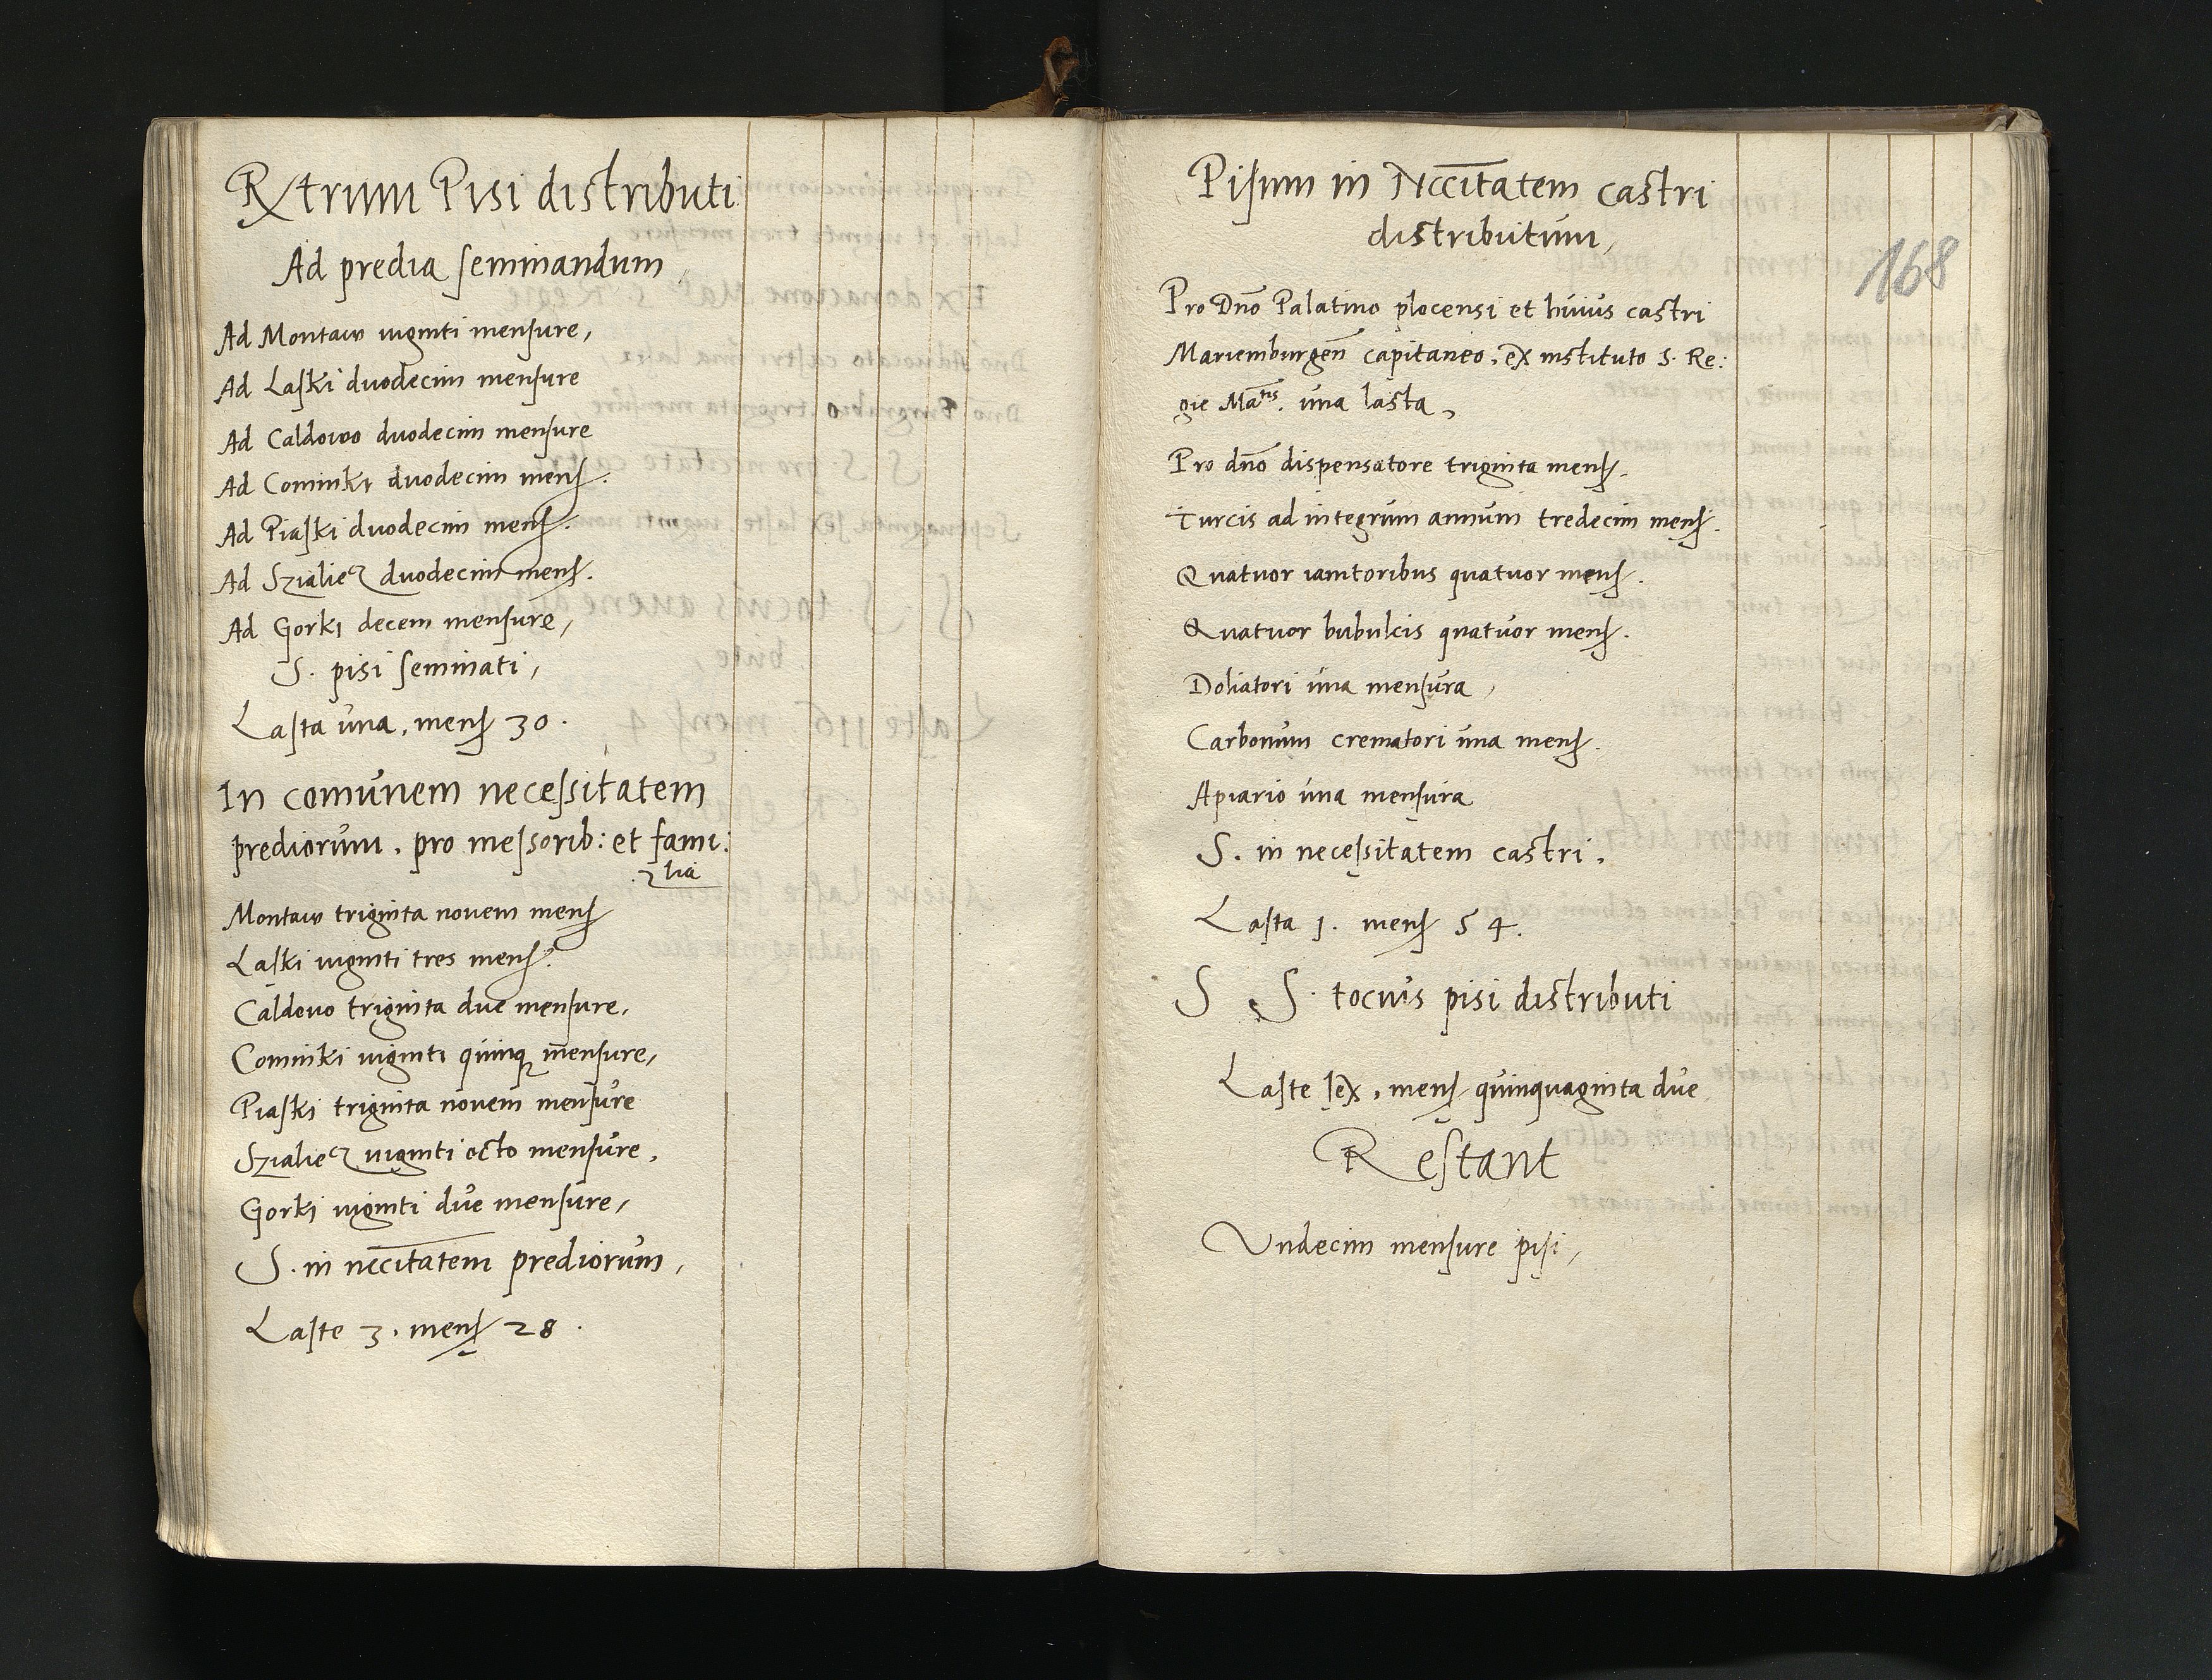 Rxtrum Pisi distributi
Ad predia seminandum,
Ad Montaw viginti mensure,
Ad Laski duodecim mensure
Ad Caldowo duodecim mensure
Ad Cominki duodecim mens.
Ad Piaski duodecim mens.
Ad Szialiecz duodecim mens.
Ad Gorki decem mensure,
S. pisi seminati,
Lasta una, mens 30.
In comunem necessitatem
prediorum. pro messorib: et fami:
lia
Montaw triginta novem mens
Laski viginti tres mens.
Caldovo triginta due mensure.
Cominki viginti quinq mensure,
Piaski triginta novem mensure
Szialiecz viginti octo mensure.
Gorki viginti due mensure,
S. in nccitatem prediorum,
Laste 3. mens 28.
Pisum in Nccitatem castri
distributum,
168
Pro Dno Palatino plocensi et huius castri
Mariemburgen capitaneo, ex instituto S. Re:
gie Matis. una lasta,
Pro dno dispensatore triginta mens.
Turcis ad integrum annum tredecim mens.
Quatuor ianitoribus quatuor mens.
Quatuor bubulcis quatuor mens.
Doliatori una mensura,
Carbonum crematori una mens.
Apiario una mensura
S. in necessitatem castri.
Lasta 1. mens 54.
S S. tocius pisi distributi
Laste sex, mens quinquaginta due
Restant
Undecim mensure pisi,